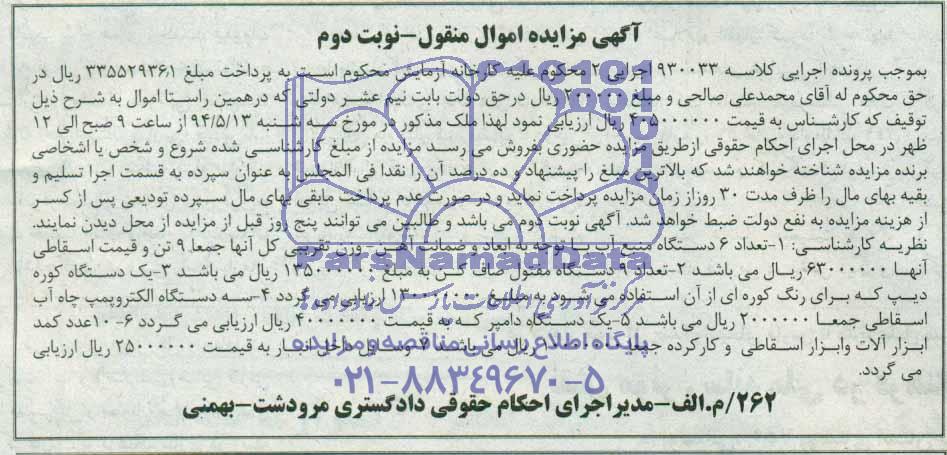 آگهی مزایده اموال منقول-نوبت دوم
بموجب پرونده اجرایی کلاسه ۹۳۰۰۳۳ اجرایی ۲ محکوم علیه کارخانه آزمایش محکوم است به پرداخت مبلغ ۳۳۵۵۲۹۳۶۱ ریال در
حق محکوم له آقای محمدعلی صالحی و مبلغ ریال درحق دولت بابت نیم عشر دولتی که درهمین راستا اموال به شرح ذیل
توقیف که کارشناس به قیمت ۴۰۵۰۰۰۰۰۰ ریال ارزیابی نمود لهذا ملک مذکور در مورخ سه شنبه ۹۴/۵/۱۳ از ساعت ۹ صبح الی ۱۲
ظهر در محل اجرای احکام حقوقی ازطریق مزایده حضوری بفروش می رسد مزایده از مبلغ کارشناسی شده شروع و شخص یا اشخاصی
برنده مزایده شناخته خواهند شد که بالاترین مبلغ را پیشنهاد و ده درصد آن را نقدا فی المجلس به عنوان سپرده به قسمت اجرا تسلیم و
بقیه بهای مال را ظرف مدت ۳۰ روزاز زمان مزایده پرداخت نماید و در صورت عدم پرداخت مابقی بهای مال سپرده تودیعی پس از کسر
از هزینه مزایده به نفع دولت ضبط خواهد شد. آگهی نوبت دوم می باشد و طالبین می توانند پنج روز قبل از مزایده از محل دیدن نمایند.
نظریه کارشناسی: ۱-تعداد ۶ دستگاه منبع آب با توجه به ابعاد و ضمائم آهنی وزن تقریبی کل آنها جمعا ۹ تن و قیمت اسقاطی
آنها ۶۳۰۰۰۰۰۰ ریال می باشد ۲-تعداد ۹ دستگاه مفتول صاف کن به مبلغ ریال می باشد ۳-یک دستگاه کوره
دیپ که برای رنگ کوره ای از آن استفاده می شود به مبلغ ارزیابی می گردد ۴-سه دستگاه الکتروپمپ چاه آب
اسقاطی جمعا ۲۰۰۰۰۰۰ ریال می باشد ۵-یک دستگاه دامپر که به قیمت ۴۰۰۰۰۰۰۰ ریال ارزیابی می گردد ۶-۱۰عدد کمد
ابزار آلات وابزار اسقاطی و کارکرده جمعا ریال می باشد ۷-وسایل داخل انبار به قیمت ۲۵۰۰۰۰۰۰ ریال ارزیابی
می گردد.
۲۶۲/م.الف-مدیراجرای احکام حقوقی دادگستری مرودشت-بهمنی
ParsNamadData
پایگاه اطلاع رسانی مناقصه و مزایده
۰۲۱-۸۸۳۴۹۶۷۰-۵